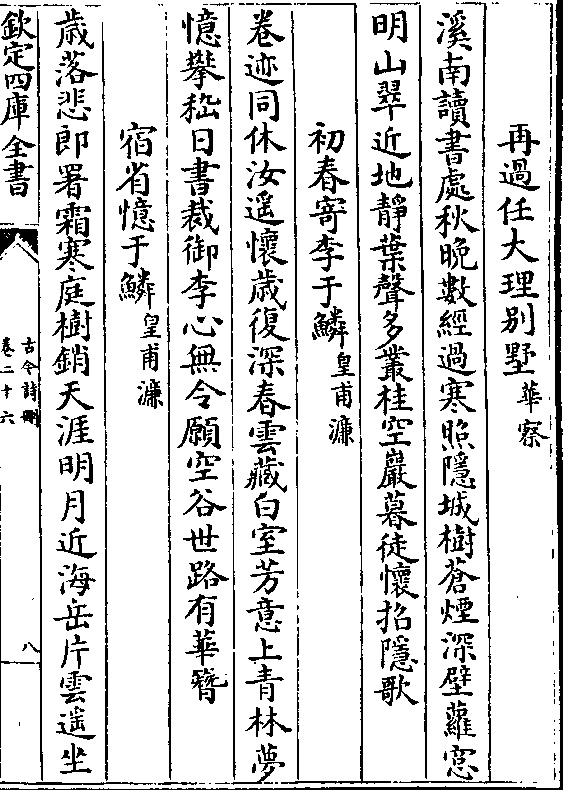 再過任大理別墅 華察
溪南讀書處秋晚數經過寒照隱城樹蒼煙深壁蘿窓
明山翠近地靜葉聲多叢桂空巖暮徒懷招隱歌
初春寄李于鱗 皇甫濂
卷迹同休汝遥懷歲復深春雲藏白室芳意上青林夢
憶擧嵇日書裁御李心無令願空谷世路有華簪
宿省憶于鱗 皇甫濂
歳落悲郎署霜寒庭樹銷天涯明月近海岳片雲遥坐
欽定四庫全書
古今詩刪
卷二十六
八